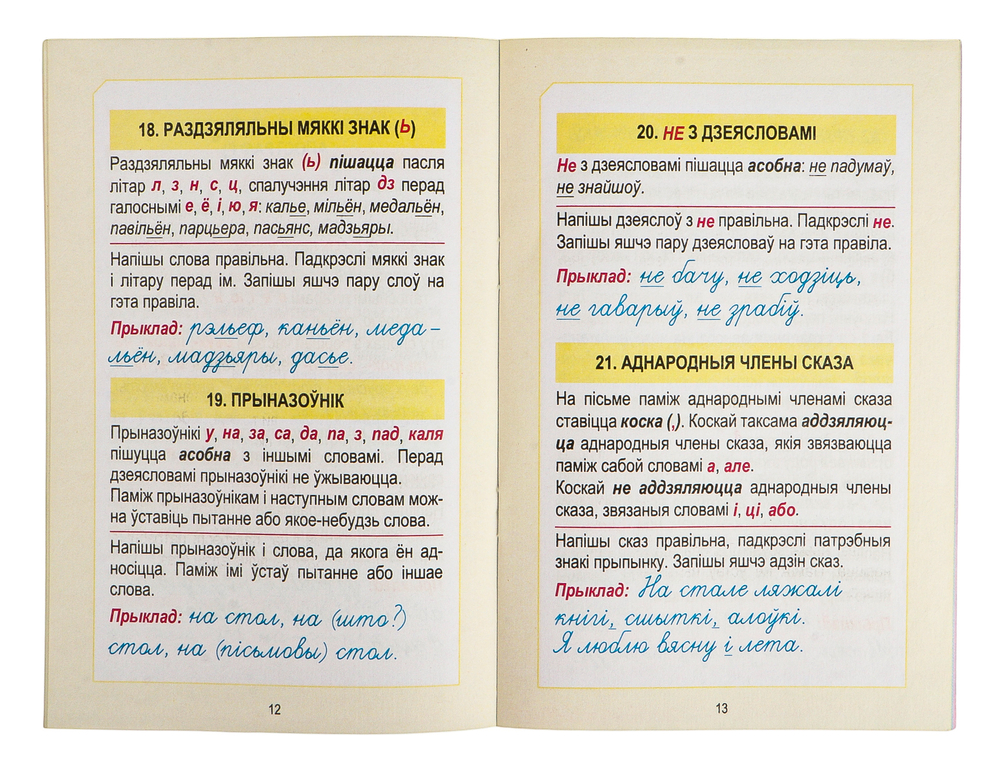 18. РАЗДЗЯЛЯЛЬНЫ МЯККІ ЗНАК (Ь)
Раздзяляльны мяккі знак (ь) пішацца пасля
літар л, з, н, с, ц, спалучэння літар дз перад
галоснымі е, ё, і, ю, я: калье, мільён, медальён,
павільён, парцьера, пасьянс, мадзьяры.
Напішы слова правільна. Падкрэслі мяккі знак
і літару перад ім. Запішы яшчэ пару слоў на
гэта правіла.
Прыклад: рэльеф, каньён, меда-
льён, мадзьяры, дасье.
19. ПРЫНАЗОЎНІК
Прыназоўнікі у, на, за, са, да, па, з, пад, каля
пішуцца асобна з іншымі словамі. Перад
дзеясловамі прыназоўнікі не ўжываюцца.
Паміж прыназоўнікам і наступным словам мож-
на ўставіць пытанне або якое-небудзь слова.
Напішы прыназоўнік і слова, да якога ён ад-
носіцца. Паміж імі ўстаў пытанне або іншае
слова.
Прыклад: на стол, на (што?)
стол, на (пісьмовы) стол.
12
20. НЕ З ДЗЕЯСЛОВАМІ
Не з дзеясловамі пішацца асобна: не падумаў,
не знайшоў.
Напішы дзеяслоў з не правільна. Падкрэслі не.
Запішы яшчэ пару дзеясловаў на гэта правіла.
Прыклад: не бачу, не ходзіць,
не гаварыў, не зрабіў.
21. АДНАРОДНЫЯ ЧЛЕНЫ СКАЗА
На пісьме паміж аднароднымі членамі сказа
ставіцца коска (,). Коскай таксама аддзяляюц-
ца аднародныя члены сказа, якія звязваюцца
паміж сабой словамі а, але.
Коскай не аддзяляюцца аднародныя члены
сказа, звязаныя словамі і, ці, або.
Напішы сказ правільна, падкрэслі патрэбныя
знакі прыпынку. Запішы яшчэ адзін сказ.
Прыклад: На стале ляжалі
кнігі, сшыткі, алоўкі.
Я люблю вясну і лета.
13